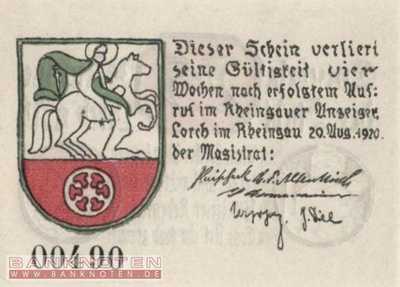 Dieser Schein verliert
seine Gültigkeit vier
Wochen nach erfolgtem Auf-
ruf im Rheingauer Anzeiger.
Lorch im Rheingau 20. Aug. 1920.
der Magistrat:
00490
BANKNOTEN
WWW.BANKNOTEN.DE